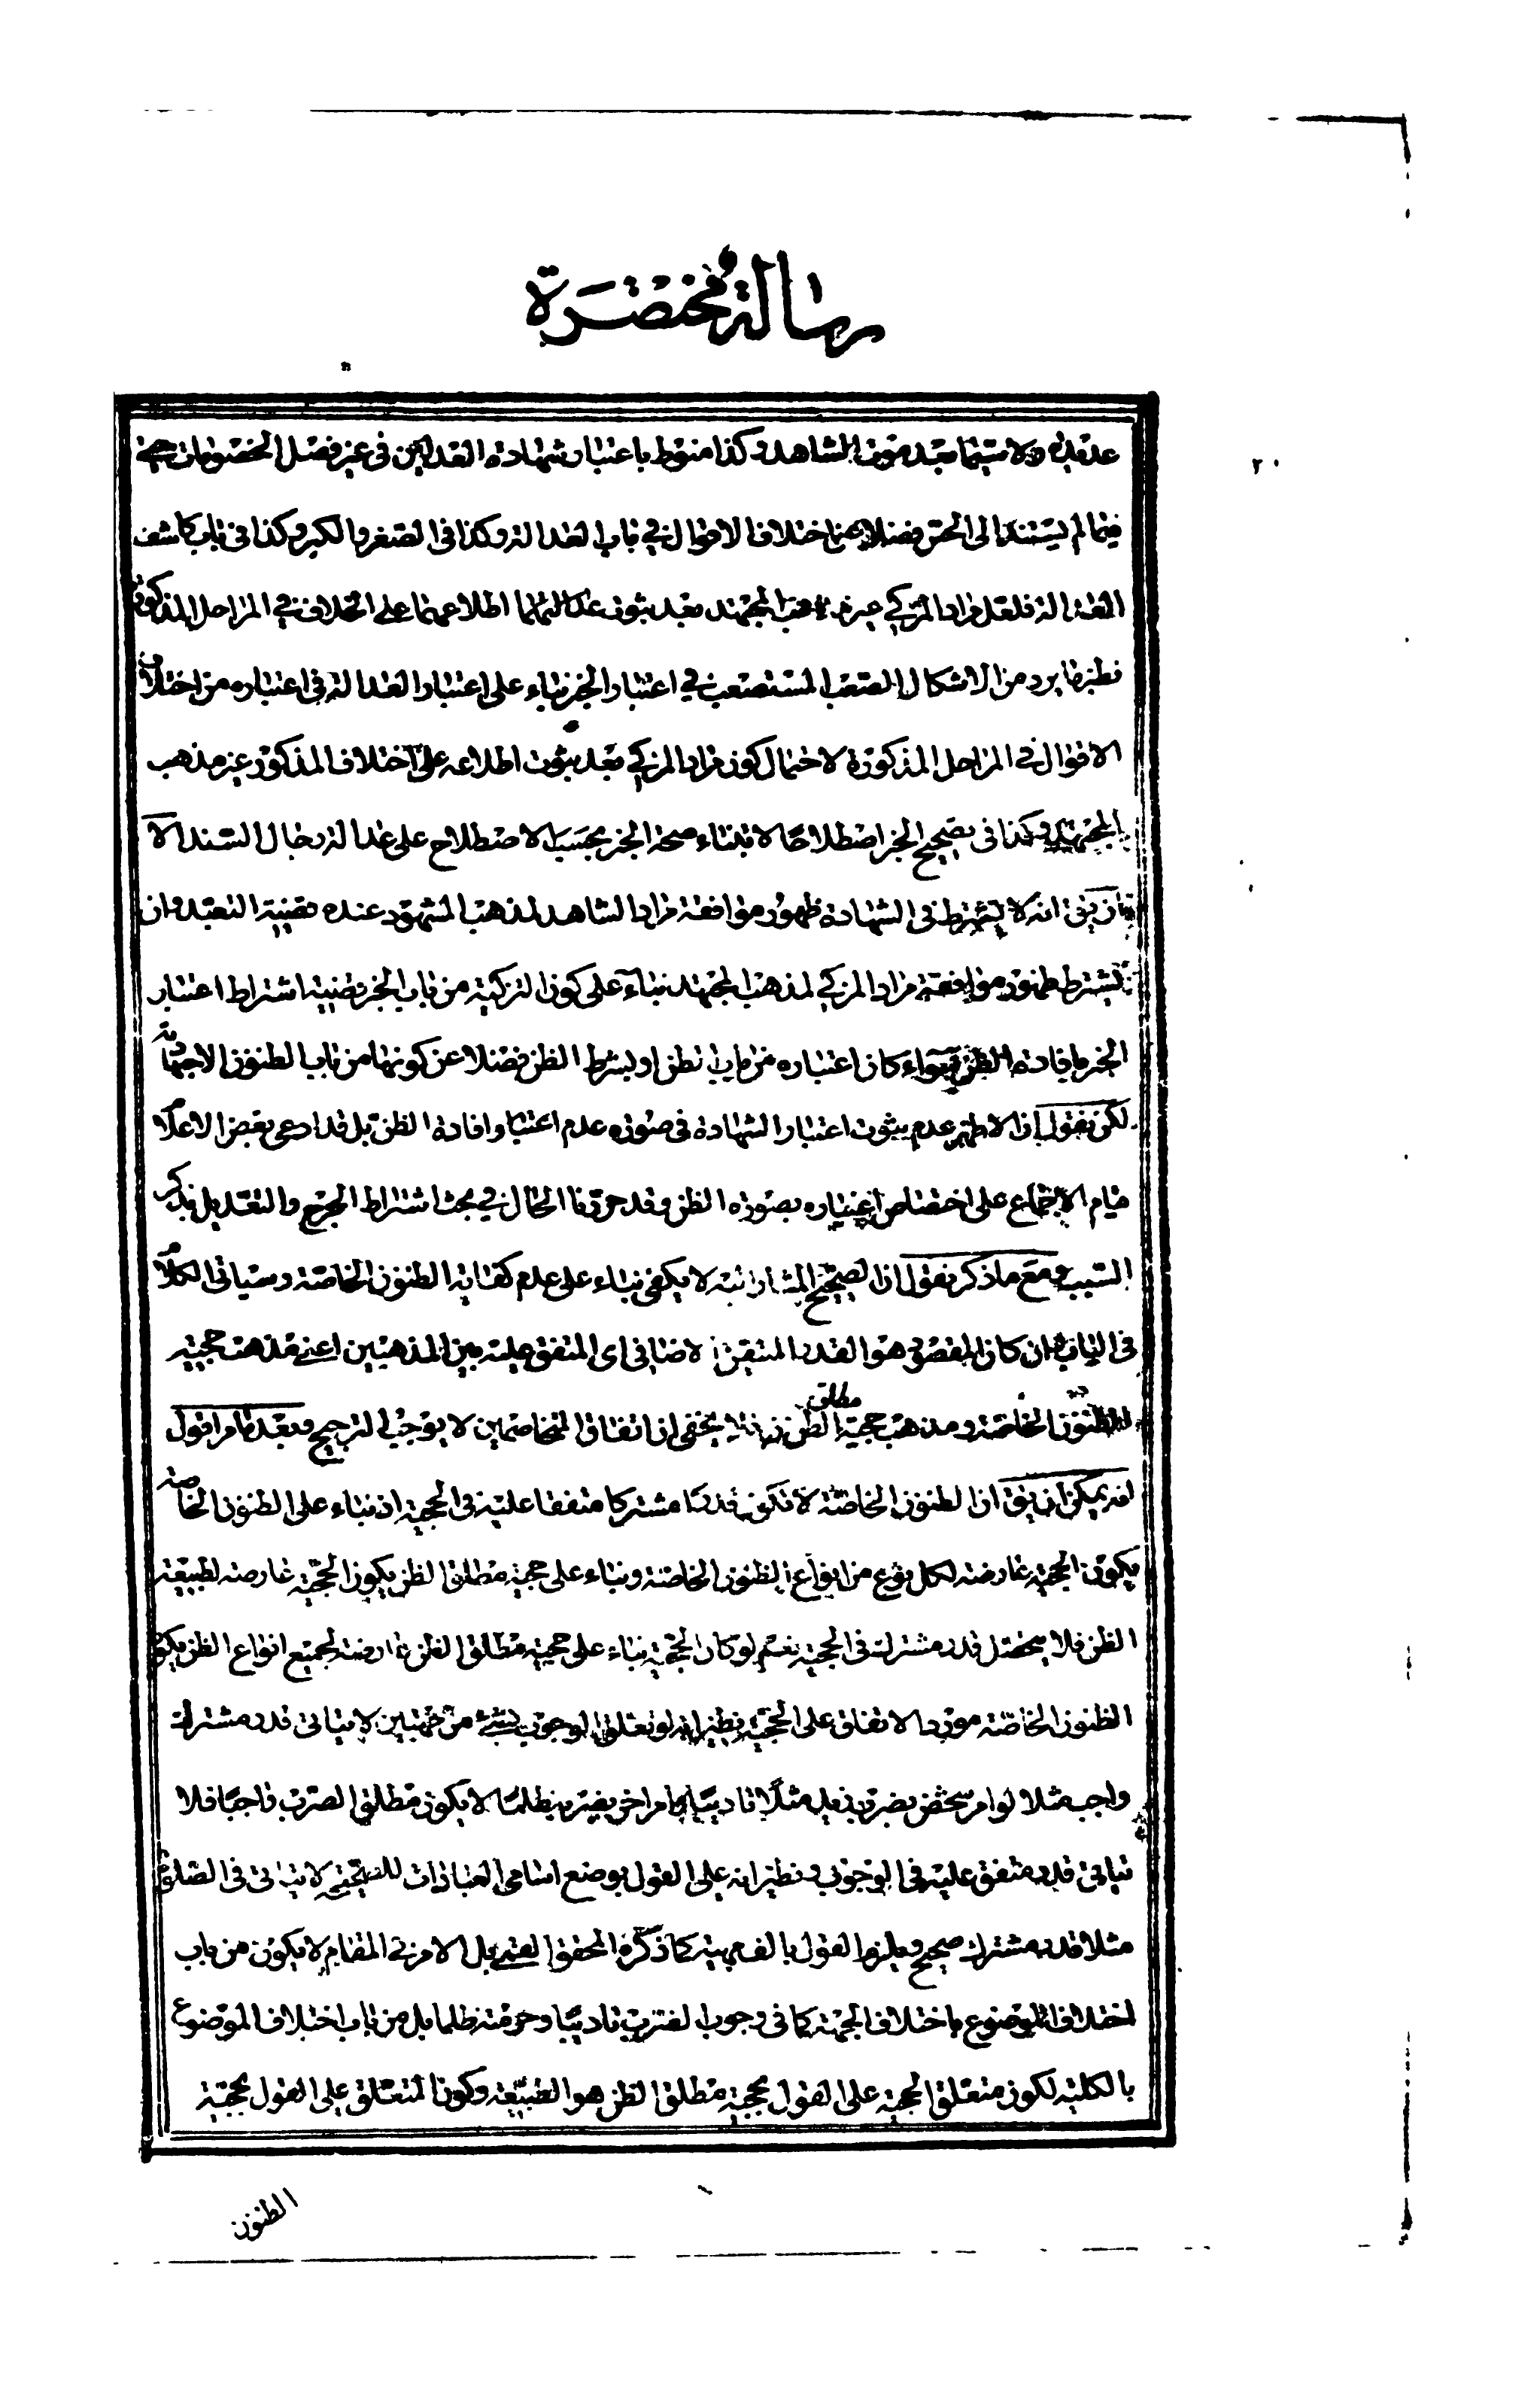 رسالة مختصرة
٢٠
عدمه ولا سيما بعد موت الشاهد وكذا منوط باعتبار شهادة العدلين في غير فصل الخصومات حتى
فيما لم يستند الى الحس فضلا عن اختلاف الاقوال في باب العدالة وكذا في الصغر والكبر وكذا في باب كاشف
العدالة فلعل مراد المزكي غير مذهب المجتهد بعد ثبوت اطلاعهما على الخلاف في المراحل المذكورة
نظير ما يرد من الاشكال الصعب المستصعب في اعتبار الخبر بناء على اعتبار العدالة في اعتباره من اختلاف
الاقوال في المراحل المذكورة لاحتمال كون مراد المزكي بعد ثبوت اطلاعه على اختلاف المذكور غير مذهب
المجتهد وكذا في تصحيح الخبر اصطلاحا لابتناء صحة الخبر بحسب الاصطلاح على عدالة رجال السند الا
ان يق انه لا يشترط في الشهادة ظهور موافقة مراد الشاهد لمذهب المشهود عنده قضية التعبد وان
يشترط ظهور موافقة مراد المزكي لمذهب المجتهد بناء على كون التزكية من باب الخبر قضية اشتراط اعتبار
الخبر بافادة الظن سواء كان اعتباره من باب الظن او بشرط الظن فضلا عن كونها من باب الظنون الاجتهادية
لكن نقول ان الاظهر عدم ثبوت اعتبار الشهادة في صورة عدم اعتبار افادة الظن بل قد ادعى بعض الاعلام
قيام الاجماع على اختصاص اعتباره بصورة الظن وقد حررنا الحال في بحث اشتراط الجرح والتعديل بذكر
السبب ومع ما ذكر نقول ان التصحيح المشار اليه لا يكفي بناء على عدم كفاية الظنون الخاصة وسياتي الكلام
في الباب وان كان المقصود هو القدر المتيقن الاضافي اى المتفق عليه بين المذهبين اعني مذهب حجية
الظنون الخاصة ومذهب حجية مطلق الظن يخفى ان اتفاق المتخاصمين لا يوجب الترجيح وبعد ما مر اقول
انه يمكن ان يق ان الظنون الخاصة لا تكون قدرا مشتركا متفقا عليه في الحجية اذ بناء على الظنون الخاصة
يكون الحجية عارضة لكل نوع من انواع الظنون الخاصة وبناء على حجية مطلق الظن يكون الحجية عارضة لطبيعة
الظن فلا يتحصل قدر مشترك في الحجية نعم لو كان الحجية بناء على حجية مطلق الظن عارضة لجميع انواع الظن يكون
الظنون الخاصة مورد الاتفاق على الحجية نظير انه لو تعلق الوجوب بشئ من جهتين لا يتاتى قدر مشترك
واجب مثلا لو امر شخص بضرب زيد مثلا تاديبا وامر اخر بضربه ظلما لا يكون مطلق الضرب واجبا فلا
يتاتى قدر متفق عليه في الوجوب ونظير انه على القول بوضع اسامى العبادات للصحيحة لا يتاتى في الصلوة
مثلا قدر مشترك صحيح ويلزم القول بالف مهية كما ذكره المحقق القمي بل الامر في المقام لا يكون من باب
اختلاف الموضوع باختلاف الجهة كما في وجوب الضرب تاديبا وحرمته ظلما بل من باب اختلاف الموضوع
بالكلية لكون متعلق الحجية على القول بحجية مطلق الظن هو الطبيعة وكون المتعلق على القول بحجية
الظنون